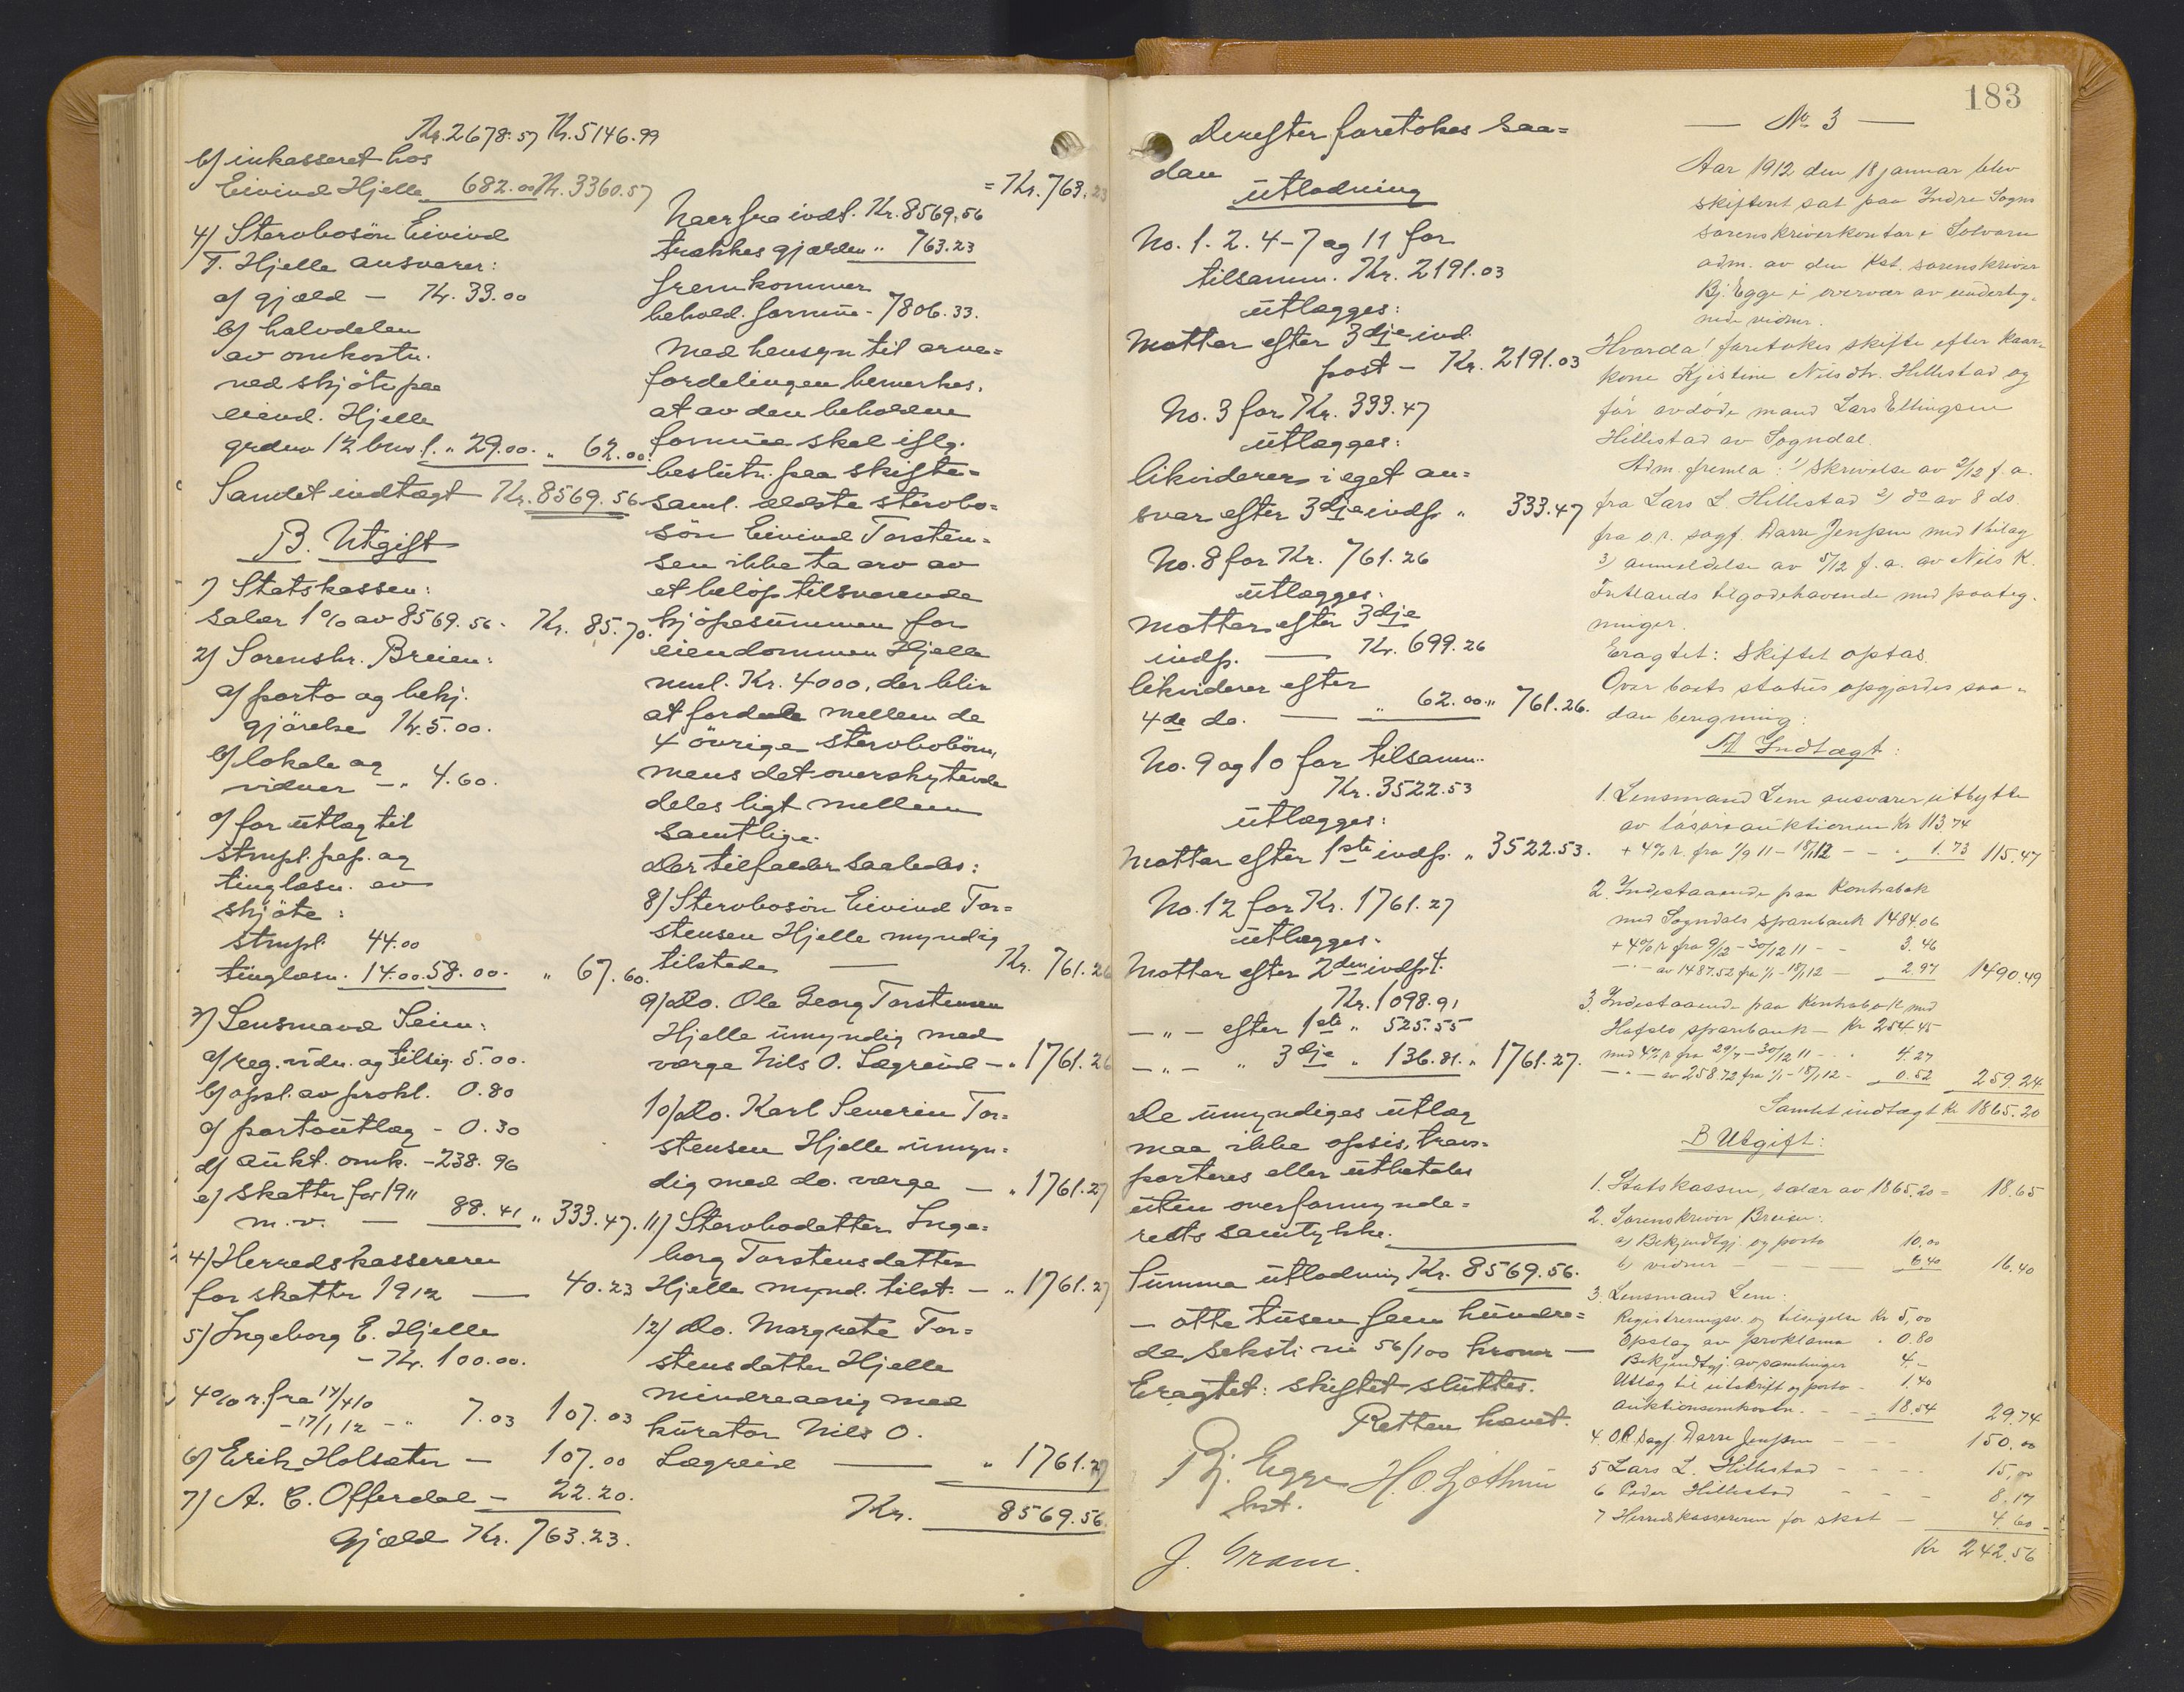 Kr. 2678.57 Kr. 5146.99
b) inkasseret hos
Eivind Hjelle 682.00 Kr. 3360.57
4) Stervbosön Eivind
T. Hjelle ansvarer:
a) gjæld – Kr. 33.00
b) halvdelen
av omkostn.
ved skjöte paa
eiend. Hjelle
grdnr 12 brno 1. " 29.00. " 62.00.
Samlet indtægt Kr. 8569.56
B. Utgift
1) Statskassen:
salær 1% av 8569.56 - Kr. 85.70.
2) Sorenskr. Breien:
a) porto og bekj.
gjörelse Kr. 5.00.
b) lokale og
vidner – " 4.60.
c) for utlæg til
stmpl. pap. og
tinglæsn. av
skjöte:
stmpl. 44.00
tinglæsn. 14.00. 58.00. " 67.60.
3) Lensmand Leim:
a) reg. vidn. og tilsig. 5.00.
b) opsl. av prokl. 0.80
c) portoutlæg - 0.30
d) aukt. omk. - 238.96
e) skatter for 1911
m. v. — 88.41 " 333.47.
4) Herredskassereren
for skatter 1912 — 40.23
5) Ingeborg E. Hjelle
- Kr. 100.00.
4% r. fra 17/4 10
- 17/1 12 - " 7.03 107.03
6) Erik Holsæter — 107.00
7) A. C. Offerdal – 22.20.
Gjæld Kr. 763.23.
= Kr. 763.23
Naar fra indt. Kr. 8569.56
trækkes gjælden " 763.23
fremkommer
behold. formue - 7806.33.
Med hensyn til arve=
fordelingen bemerkes,
at av den beholdne
formue skal iflg.
beslutn. paa skifte=
saml. ældste stervbo=
sön Eivind Torsten=
sen ikke ta arv av
et belöp tilsvarende
kjöpesummen for
eiendommen Hjelle
neml. Kr. 4000, der blir
at fordele mellem de
4 övrige stervbobörn,
mens det overskytende
deles ligt mellem
samtlige.
Der tilfalder saaledes:
8) Stervbosön Eivind Tor=
stensen Hjelle myndig
tilstede — Kr. 761.26
9) Do. Ole Georg Torstensen
Hjelle umyndig med
værge Nils O. Lægreid — " 1761.26
10) Do. Karl Severin Tor=
stensen Hjelle umyn=
dig med do. værge — " 1761.27
11) Stervbodatter Inge=
borg Torstensdatter
Hjelle mynd. tilst. — " 1761.27
12) Do. Margrete Tor=
stensdatter Hjelle
mindreaarig med
kurator Nils O.
Lægreid — " 1761.27
Kr. 8569.56
Derefter foretokes saa=
dan
utlodning
No. 1. 2. 4–7 og 11 for
tilsamm. Kr. 2191.03
utlægges:
Mottar efter 3dje ind.
post – Kr. 2191.03
No. 3 for Kr. 333.47
utlægges:
likviderer i eget an=
svar efter 3dje indp. " 333.47
No. 8 for Kr. 761.26
utlægges:
Mottar efter 3dje
indp. — Kr. 699.26
likviderer efter
4de do. — " 62.00 " 761.26.
No. 9 og 10 for tilsamm.
Kr. 3522.53
utlægges:
Mottar efter 1ste indp. " 3522.53.
No. 12 for Kr. 1761.27
utlægges:
Mottar efter 2den indpt.
Kr. 1098.91
– " – efter 1ste " 525.55
– " – " 3dje " 136.81. " 1761.27.
De umyndiges utlæg
maa ikke opsis, trans=
porteres eller utbetales
uten overformynde=
riets samtykke.
Summa utlodning Kr. 8569.56.
— otte tusen fem hundre=
de seksti ni 56/100 kroner —
Eragtet: skiftet sluttes.
Retten hævet.
Bj. Egge H. O. Gjothun
kst.
J. Gram.
183
— No 3 —
Aar 1912 den 18 januar blev
skifteret sat paa Indre Sogns
sorenskriverkontor i Solvorn
adm. av den kst. sorenskriver
Bj. Egge i overvær av underteg-
nede vidner.
Hvorda! foretokes skifte efter kaar-
kone Kjistine Nilsdtr. Hillestad og
før avdøde mand Lars Ellingsen
Hillestad av Sogndal.
Adm. fremla: 1) skrivelse av 2/12 f. a.
fra Lars L. Hillestad 2) do av 8 ds.
fra o.r. sagf. Darre Jenssen med 1 bilag
3) anmeldelse av 5/12 f. a. av Nils K.
Futlands tilgodehavende med paateg-
ninger.
Eragtet: Skiftet optas.
Over boets status opgjordes saa-
dan beregning:
A Indtægt:
1. Lensmand Leim ansvarer utbytte
av løsøreauktionen Kr 113.74
+ 4% r. fra 1/9 11 – 18/1 12 - - " 1.73 115.47
2. Indestaaende paa Kontrabok
med Sogndals sparebank 1484.06
+ 4% r. fra 9/12 – 30/12 11 - - 3.46
— " — av 1487.52 fra 1/1 – 18/1 12 — 2.97 1490.49
3. Indestaaende paa Kontrabok med
Hafslo sparebank — Kr 254.45
med 4% r fra 29/7 – 30/12 11 - - " 4.27
— " — av 258.72 fra 1/1 – 18/1 12 - 0.52 259.24
Samlet indtægt Kr 1865.20
B Utgift:
1. Statskassen, salær av 1865.20 = 18.65
2. Sorenskriver Breien:
a) Bekjendtgj. og porto 10.00
b) vidner — — — 6.40 16.40
3. Lensmand Leim:
Registreringsv. og tilsigelse Kr 5,00
Opslag av proklama " 0.80
Bekjendtgj. av samlinger 4.–
Utlæg til utskrift og porto – 1.40
Auktionsomkostn. - - 18.54 29.74
4. O.R. Sagf. Darre Jenssen — — 150.00
5 Lars L. Hillestad - - - 15,00
6 Peder Hillestad - - - 8,17
7 Herredskassereren for skat — 4.60
Kr 242.56